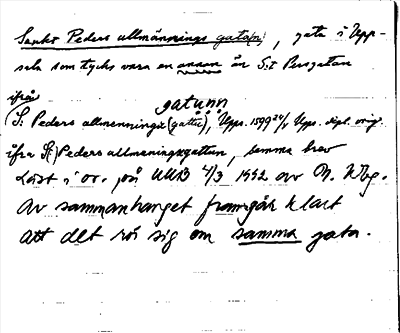 Sankt Peders allmännings gata(n), gata i Upp-
sala som tycks vara en annan än S:t Persgatan
ifrån gatunn
S: Peders allmenningx (gattu), Upps. 1599 24/ Upps. dipl. orig.
ifrå St Peders allmeningxgattun, samma brev
Läst i or. på UUB 4/3 1952 av M. Wbg.
Av sammanhanget framgår klart
att det rör sig om samma gata.